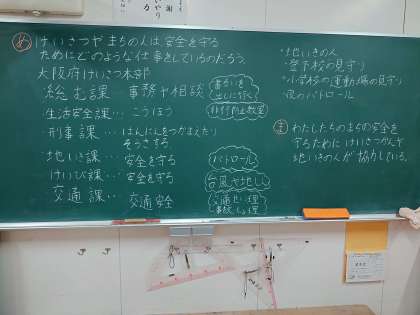 め けいさつや まちの人は 安全を守る
ためにどのような仕事をしているのだろう。
大阪府けいさつ本部
総む課 事務や相談
生活安全課… こうほう
非行防止教室
刑事課… はんにんをつかまえたり
そうさする
地いき課… 安全を守る
パトロール
けいび課… 安全を守る
台風や地しん
交通課… 交通安全
・地いきの人
・登下校の見守り
・小学校の運動場の見守り
・夜のパトロール
ま わたしたちのまちの安全を
守るために けいさつかんや
地いきの人が協力している。